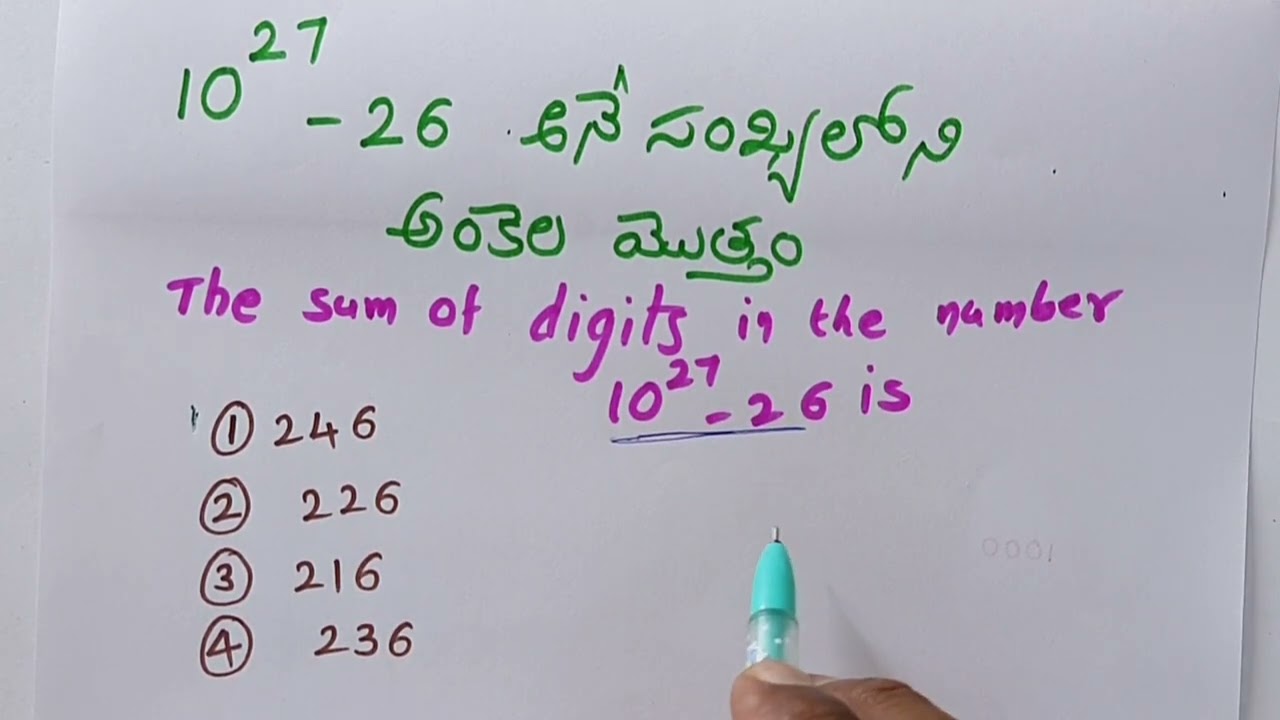 10²⁷ - 26 అనే సంఖ్యలోని
అంకెల మొత్తం
The sum of digits in the number
10²⁷ - 26 is
① 246
② 226
③ 216
④ 236
0001